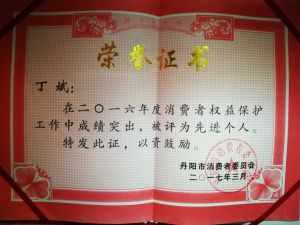 荣誉证书
丁斌：
在二〇一六年度消费者权益保护
工作中成绩突出，被评为先进个人。
特发此证，以资鼓励。
丹阳市消费者委员会
二〇一七年三月